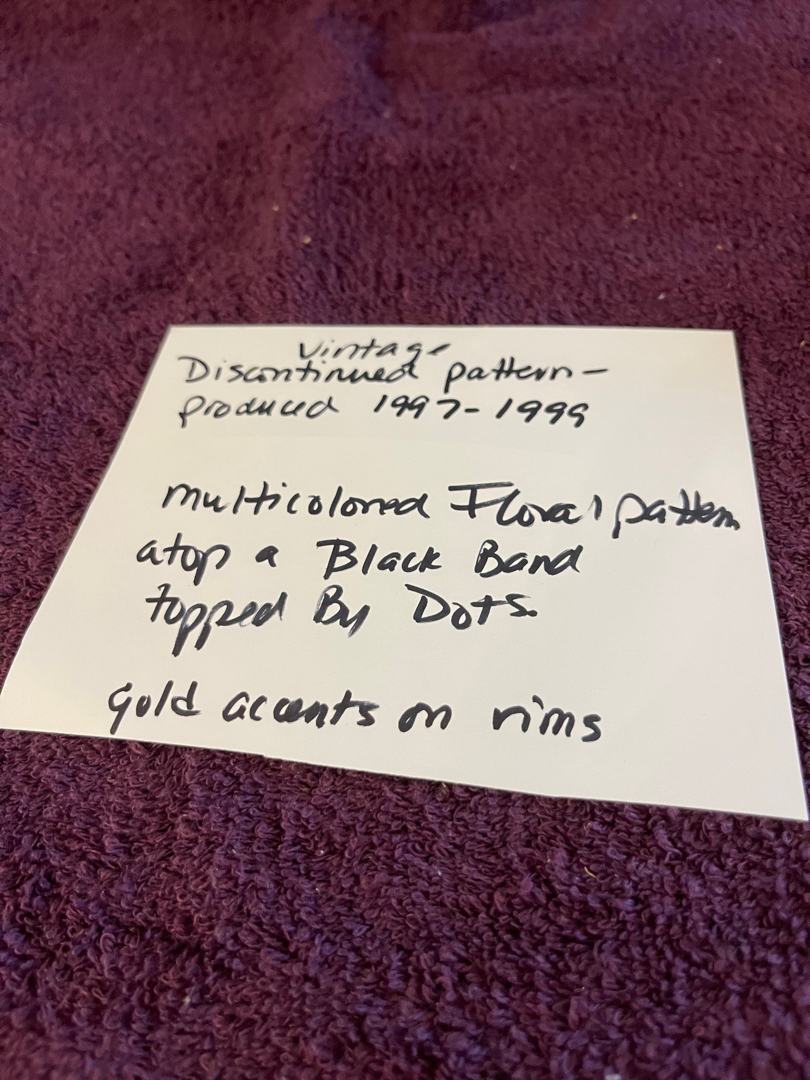 Vintage
Discontinued pattern -
produced 1997-1999
multicolored Floral pattern
atop a Black Band
topped By Dots.
Gold accents on rims